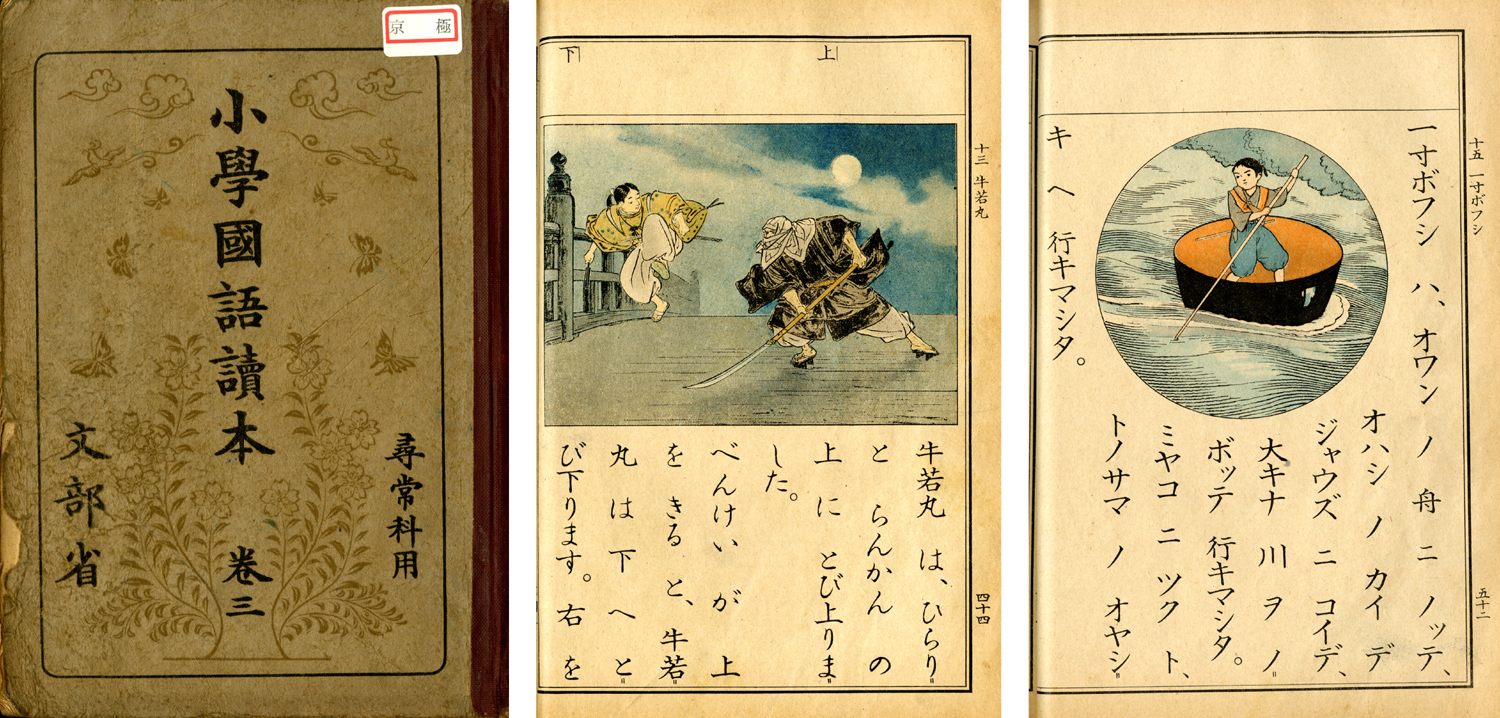 京極
小學國語讀本
尋常科用
卷三
文部省
上
下
十三 牛若丸
牛若丸 は、ひらり
と らんかん の
上 に とび上りま
した。
べんけい が 上
を きる と、牛若
丸 は 下 へ と
び下ります。右 を
四十四
十五 一寸ボフシ
一寸ボフシ ハ、オワン ノ 舟 ニ ノッテ、
オハシ ノ カイ デ
ジャウズ ニ コイデ、
大キナ 川 ヲ ノ
ボッテ 行キマシタ。
ミヤコ ニ ツク ト、
トノサマ ノ オヤシ
キ ヘ 行キマシタ。
五十二